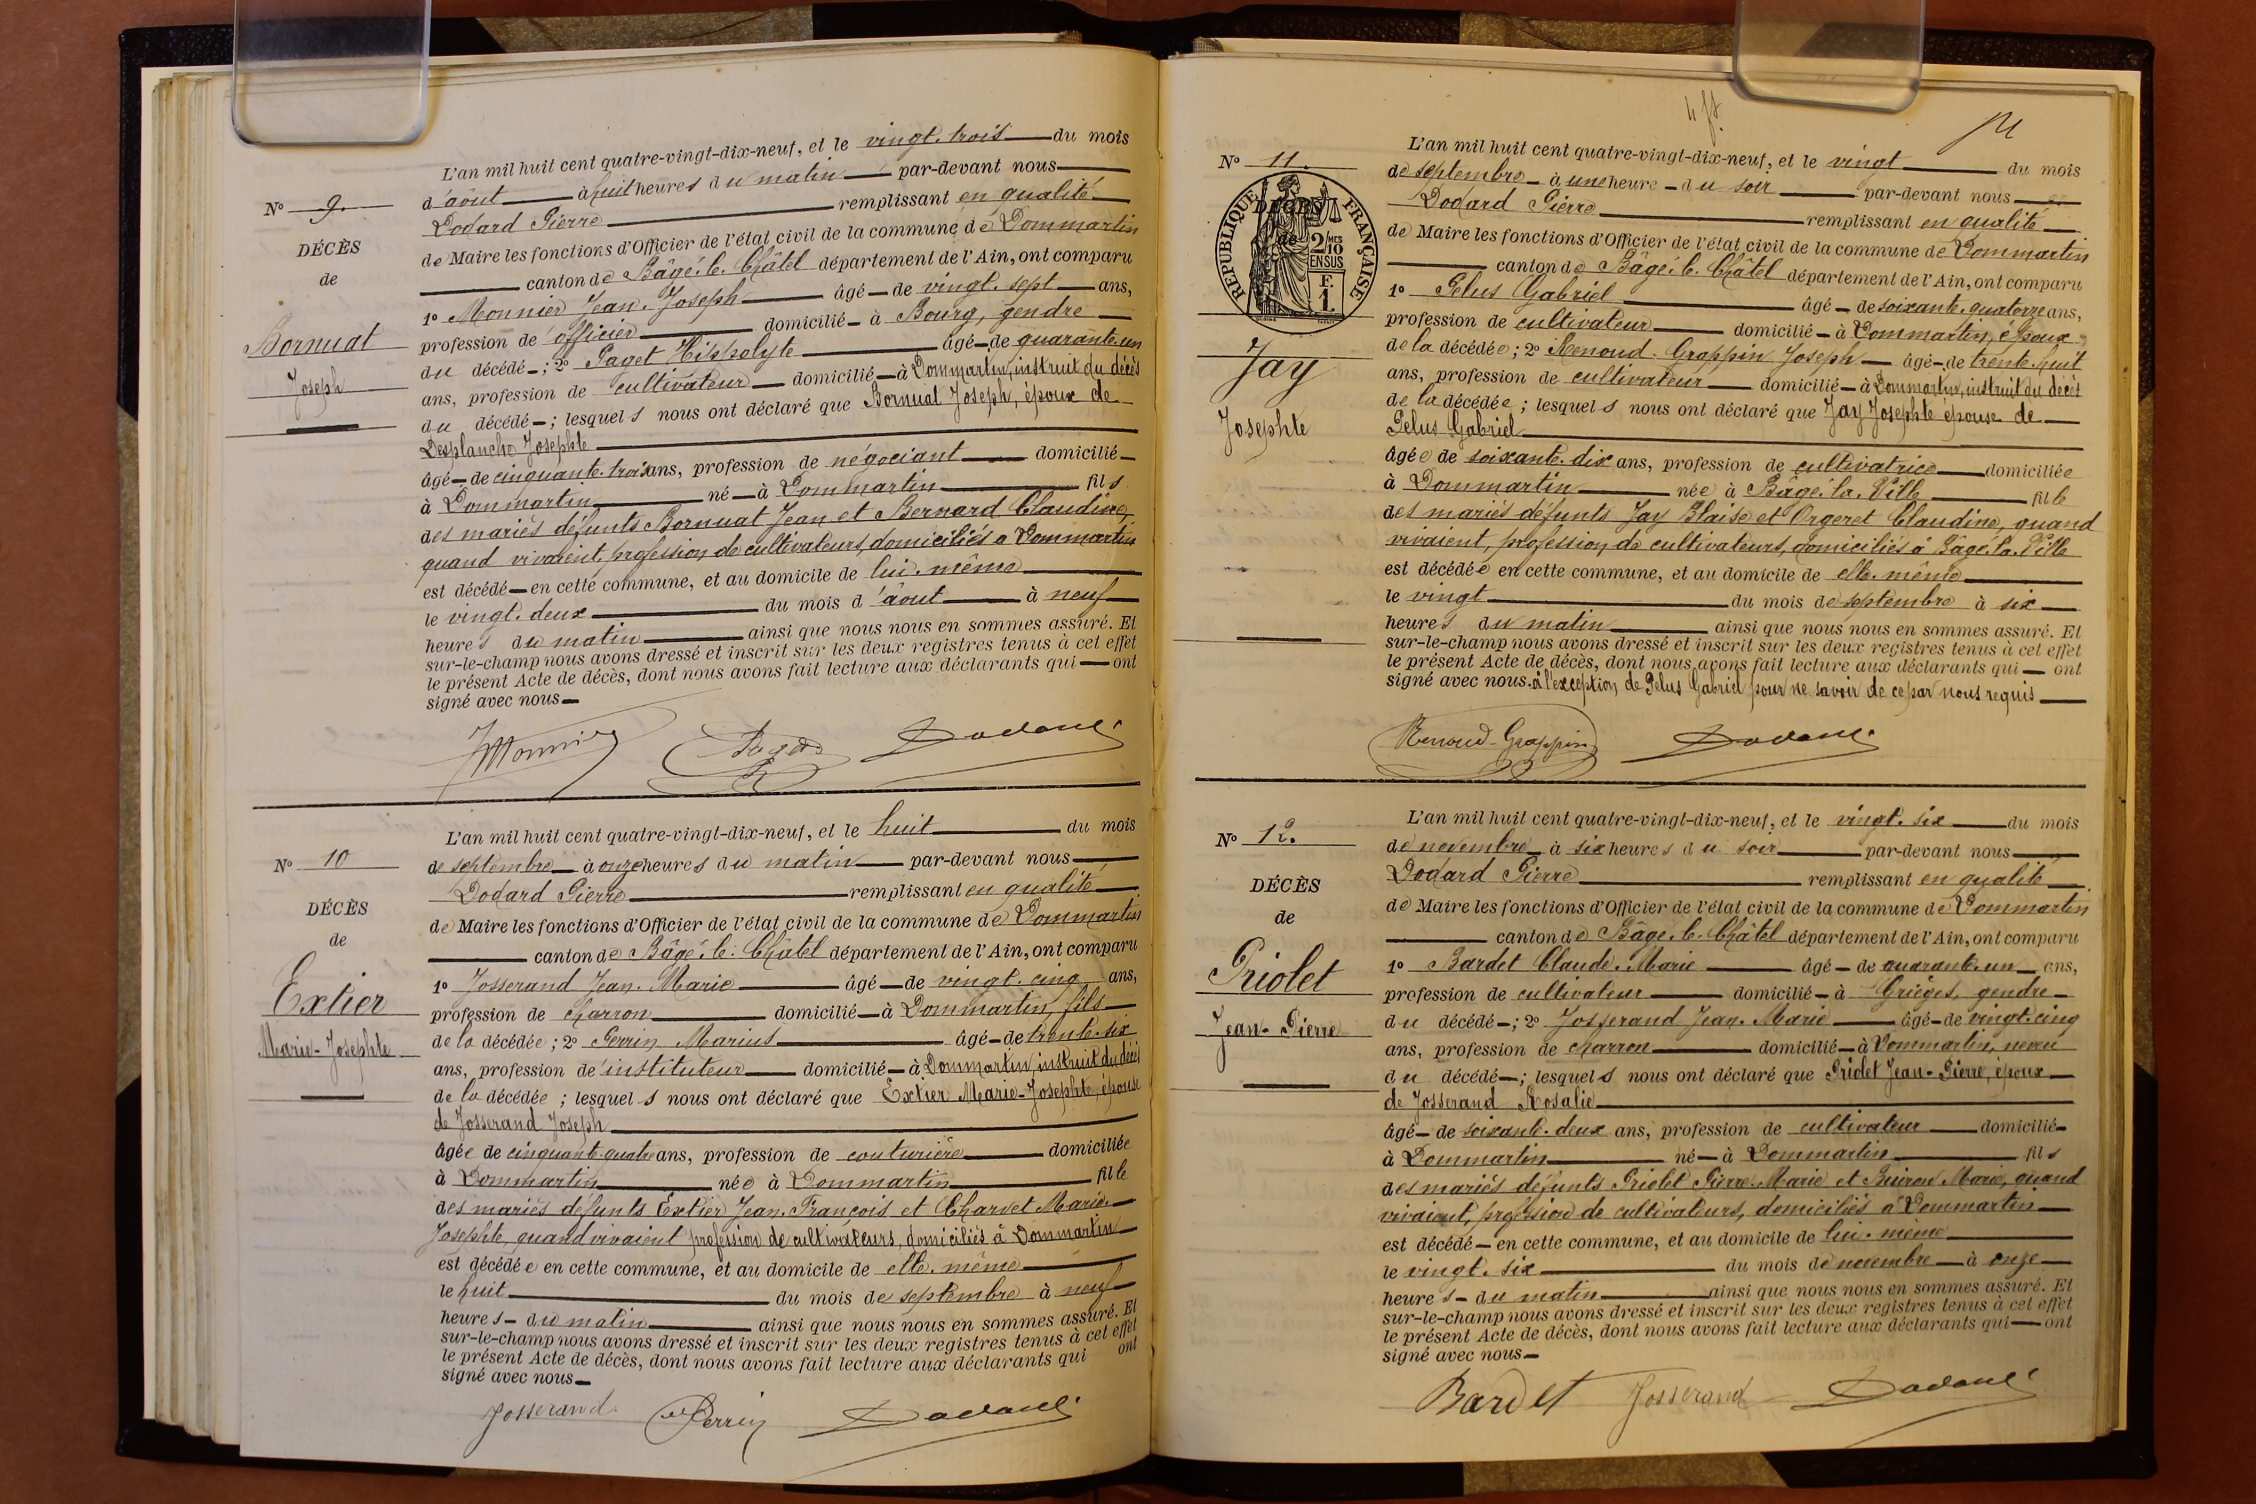 L'an mil huit cent quatre-vingt-dix-neuf, et le vingt-trois du mois
d'août à huit heures du matin par-devant nous
Dodard Pierre remplissant en qualité
de Maire les fonctions d'Officier de l'état civil de la commune de Dommartin
canton de Bâgé-le-Châtel département de l'Ain, ont comparu
1° Monnier Jean-Joseph âgé de vingt-sept ans,
profession de officier domicilié à Bourg, gendre
du décédé; 2° Paget Hippolyte âgé de quarante-un
ans, profession de cultivateur domicilié à Dommartin, instruit du décès
du décédé; lesquels nous ont déclaré que Bornuat Joseph, époux de
Desplanche Josephte
âgé de cinquante-trois ans, profession de négociant domicilié
à Dommartin né à Dommartin fils
des mariés défunts Bornuat Jean et Bernard Claudine,
quand vivaient, profession de cultivateurs, domiciliés à Dommartin
est décédé en cette commune, et au domicile de lui-même
le vingt-deux du mois d'août à neuf
heures du matin ainsi que nous nous en sommes assuré. Et
sur-le-champ nous avons dressé et inscrit sur les deux registres tenus à cet effet
le présent Acte de décès, dont nous avons fait lecture aux déclarants qui ont
signé avec nous
N° 9.
DÉCÈS
de
Bornuat
Joseph
JMonnier Paget Dodard
L'an mil huit cent quatre-vingt-dix-neuf, et le huit du mois
de septembre à onze heures du matin par-devant nous
Dodard Pierre remplissant en qualité
de Maire les fonctions d'Officier de l'état civil de la commune de Dommartin
canton de Bâgé-le-Châtel département de l'Ain, ont comparu
1° Josserand Jean-Marie âgé de vingt-cinq ans,
profession de charron domicilié à Dommartin, fils
de la décédée; 2° Perrin Marius âgé de trente-six
ans, profession de instituteur domicilié à Dommartin, instruit du décès
de la décédée; lesquels nous ont déclaré que Extier Marie-Josephte, épouse
de Josserand Joseph
âgée de cinquante-quatre ans, profession de couturière domiciliée
à Dommartin née à Dommartin fille
des mariés défunts Extier Jean-François et Charvet Marie-
Josephte, quand vivaient profession de cultivateurs, domiciliés à Dommartin
est décédée en cette commune, et au domicile de elle-même
le huit du mois de septembre à neuf
heures du matin ainsi que nous nous en sommes assuré. Et
sur-le-champ nous avons dressé et inscrit sur les deux registres tenus à cet effet
le présent Acte de décès, dont nous avons fait lecture aux déclarants qui ont
signé avec nous
N° 10
DÉCÈS
de
Extier
Marie-Josephte
Josserand Perrin Dodard
L'an mil huit cent quatre-vingt-dix-neuf, et le vingt du mois
de septembre à une heure du soir par-devant nous
Dodard Pierre remplissant en qualité
de Maire les fonctions d'Officier de l'état civil de la commune de Dommartin
canton de Bâgé-le-Châtel département de l'Ain, ont comparu
1° Pelus Gabriel âgé de soixante-quatorze ans,
profession de cultivateur domicilié à Dommartin, époux
de la décédée; 2° Renoud-Grappin Joseph âgé de trente-huit
ans, profession de cultivateur domicilié à Dommartin, instruit du décès
de la décédée; lesquels nous ont déclaré que Jay Josephte épouse de
Pelus Gabriel
âgée de soixante-dix ans, profession de cultivatrice domiciliée
à Dommartin née à Bâgé-la-Ville fille
des mariés défunts Jay Blaise et Orgeret Claudine, quand
vivaient, profession de cultivateurs, domiciliés à Bâgé-la-Ville
est décédée en cette commune, et au domicile de elle-même
le vingt du mois de septembre à six
heures du matin ainsi que nous nous en sommes assuré. Et
sur-le-champ nous avons dressé et inscrit sur les deux registres tenus à cet effet
le présent Acte de décès, dont nous avons fait lecture aux déclarants qui ont
signé avec nous. à l'exception de Pelus Gabriel pour ne savoir de ce par nous requis
N° 11.
DÉCÈS
de
RÉPUBLIQUE FRANÇAISE
2/10 MES
EN SUS
F.
1
Jay
Josephte
Renoud-Grappin Dodard
L'an mil huit cent quatre-vingt-dix-neuf, et le vingt-six du mois
de novembre à six heures du soir par-devant nous
Dodard Pierre remplissant en qualité
de Maire les fonctions d'Officier de l'état civil de la commune de Dommartin
canton de Bâgé-le-Châtel département de l'Ain, ont comparu
1° Bardet Claude-Marie âgé de quarante-un ans,
profession de cultivateur domicilié à Grièges, gendre
du décédé; 2° Josserand Jean-Marie âgé de vingt-cinq
ans, profession de charron domicilié à Dommartin, neveu
du décédé; lesquels nous ont déclaré que Priolet Jean-Pierre, époux
de Josserand Rosalie
âgé de soixante-deux ans, profession de cultivateur domicilié
à Dommartin né à Dommartin fils
des mariés défunts Priolet Pierre-Marie et Marie, quand
vivaient, profession de cultivateurs, domiciliés à Dommartin
est décédé en cette commune, et au domicile de lui-même
le vingt-six du mois de novembre à onze
heures du matin ainsi que nous nous en sommes assuré. Et
sur-le-champ nous avons dressé et inscrit sur les deux registres tenus à cet effet
le présent Acte de décès, dont nous avons fait lecture aux déclarants qui ont
signé avec nous
N° 12.
DÉCÈS
de
Priolet
Jean-Pierre
Bardet Josserand Dodard